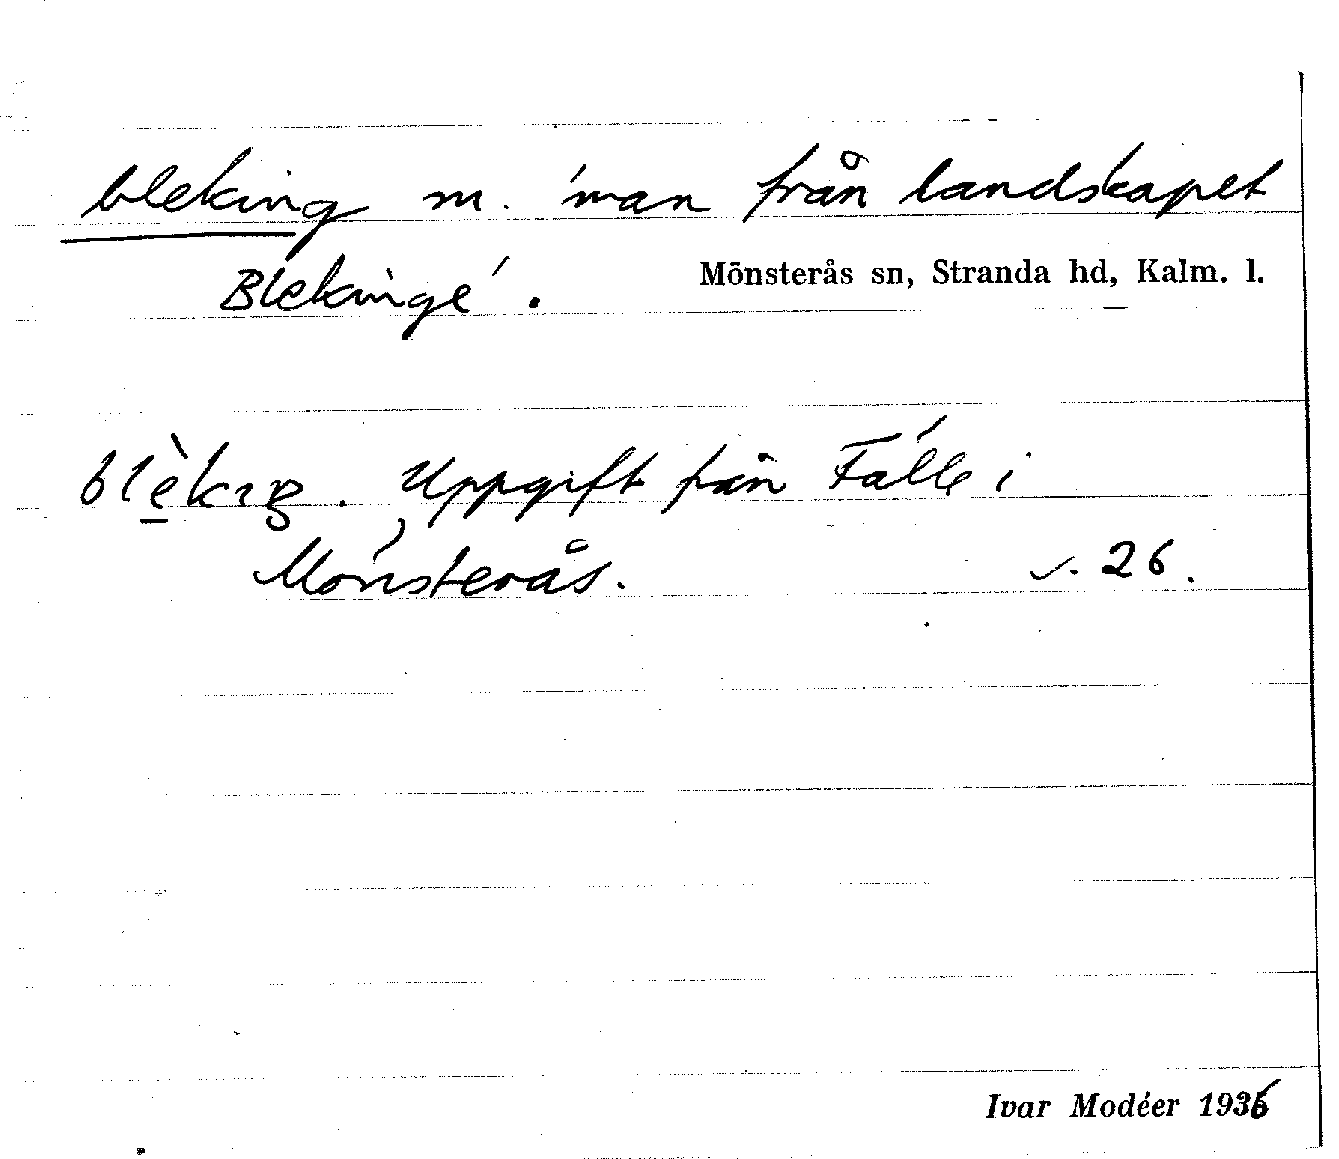 bleking m. 'man från landskapet
Blekinge'.
Mönsterås sn, Stranda hd, Kalm. l.
blèkıŋ. Uppgift från Fälle i
Mönsterås. s. 26.
Ivar Modéer 1936